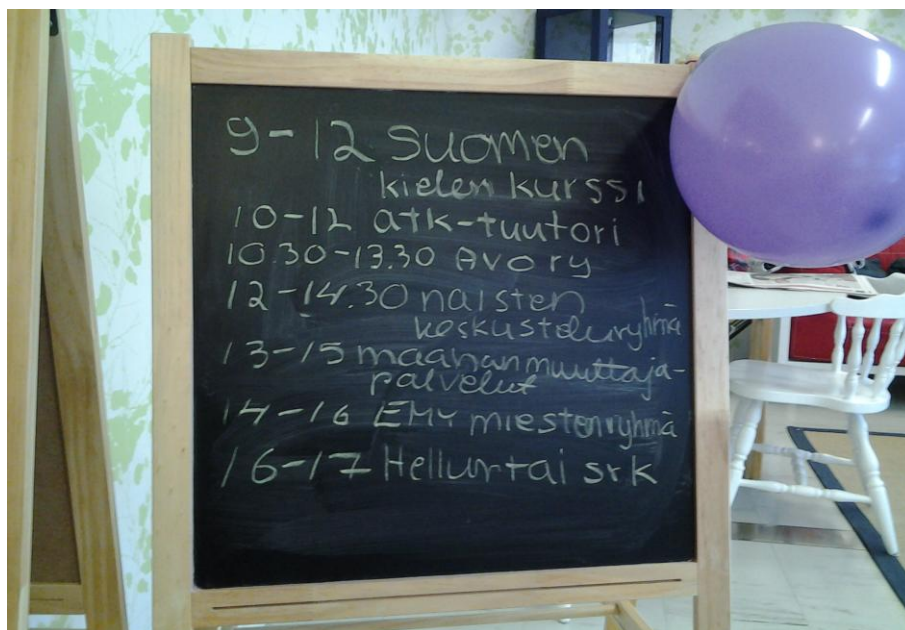 9-12 suomen
kielen kurssi
10-12 atk-tuutori
10.30-13.30 Avory
12-14.30 naisten
keskusteluryhmä
13-15 maahanmuuttaja-
palvelut
14-16 EMY miestenryhmä
16-17 Helluntai srk